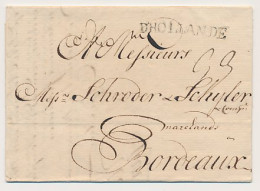 D'HOLLANDE
A Messieurs
Mess.rs Schröder & Schÿler
marchands
Bordeaux